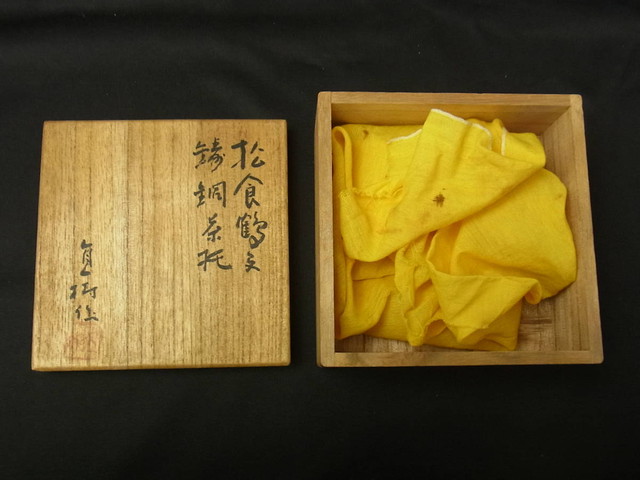 松食鶴文
鋳銅茶托
貞樹作